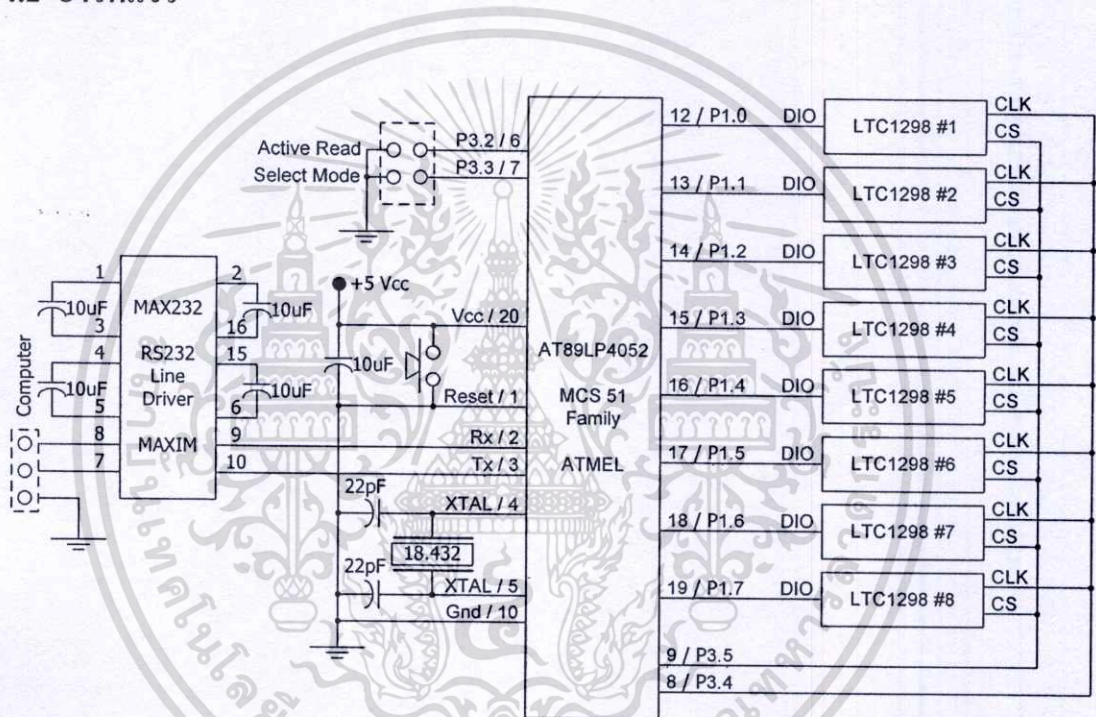 Active Read
Select Mode
P3.2 / 6
P3.3 / 7
1
3
4
5
8
7
10uF
10uF
MAX232
RS232
Line
Driver
MAXIM
2
16
15
6
9
10
10uF
10uF
Computer
+5 Vcc
10uF
Vcc / 20
Reset / 1
Rx / 2
Tx / 3
22pF
XTAL / 4
18.432
22pF
XTAL / 5
Gnd / 10
AT89LP4052
MCS 51
Family
ATMEL
12 / P1.0 DIO LTC1298 #1 CLK
CS
13 / P1.1 DIO LTC1298 #2 CLK
CS
14 / P1.2 DIO LTC1298 #3 CLK
CS
15 / P1.3 DIO LTC1298 #4 CLK
CS
16 / P1.4 DIO LTC1298 #5 CLK
CS
17 / P1.5 DIO LTC1298 #6 CLK
CS
18 / P1.6 DIO LTC1298 #7 CLK
CS
19 / P1.7 DIO LTC1298 #8 CLK
CS
9 / P3.5
8 / P3.4